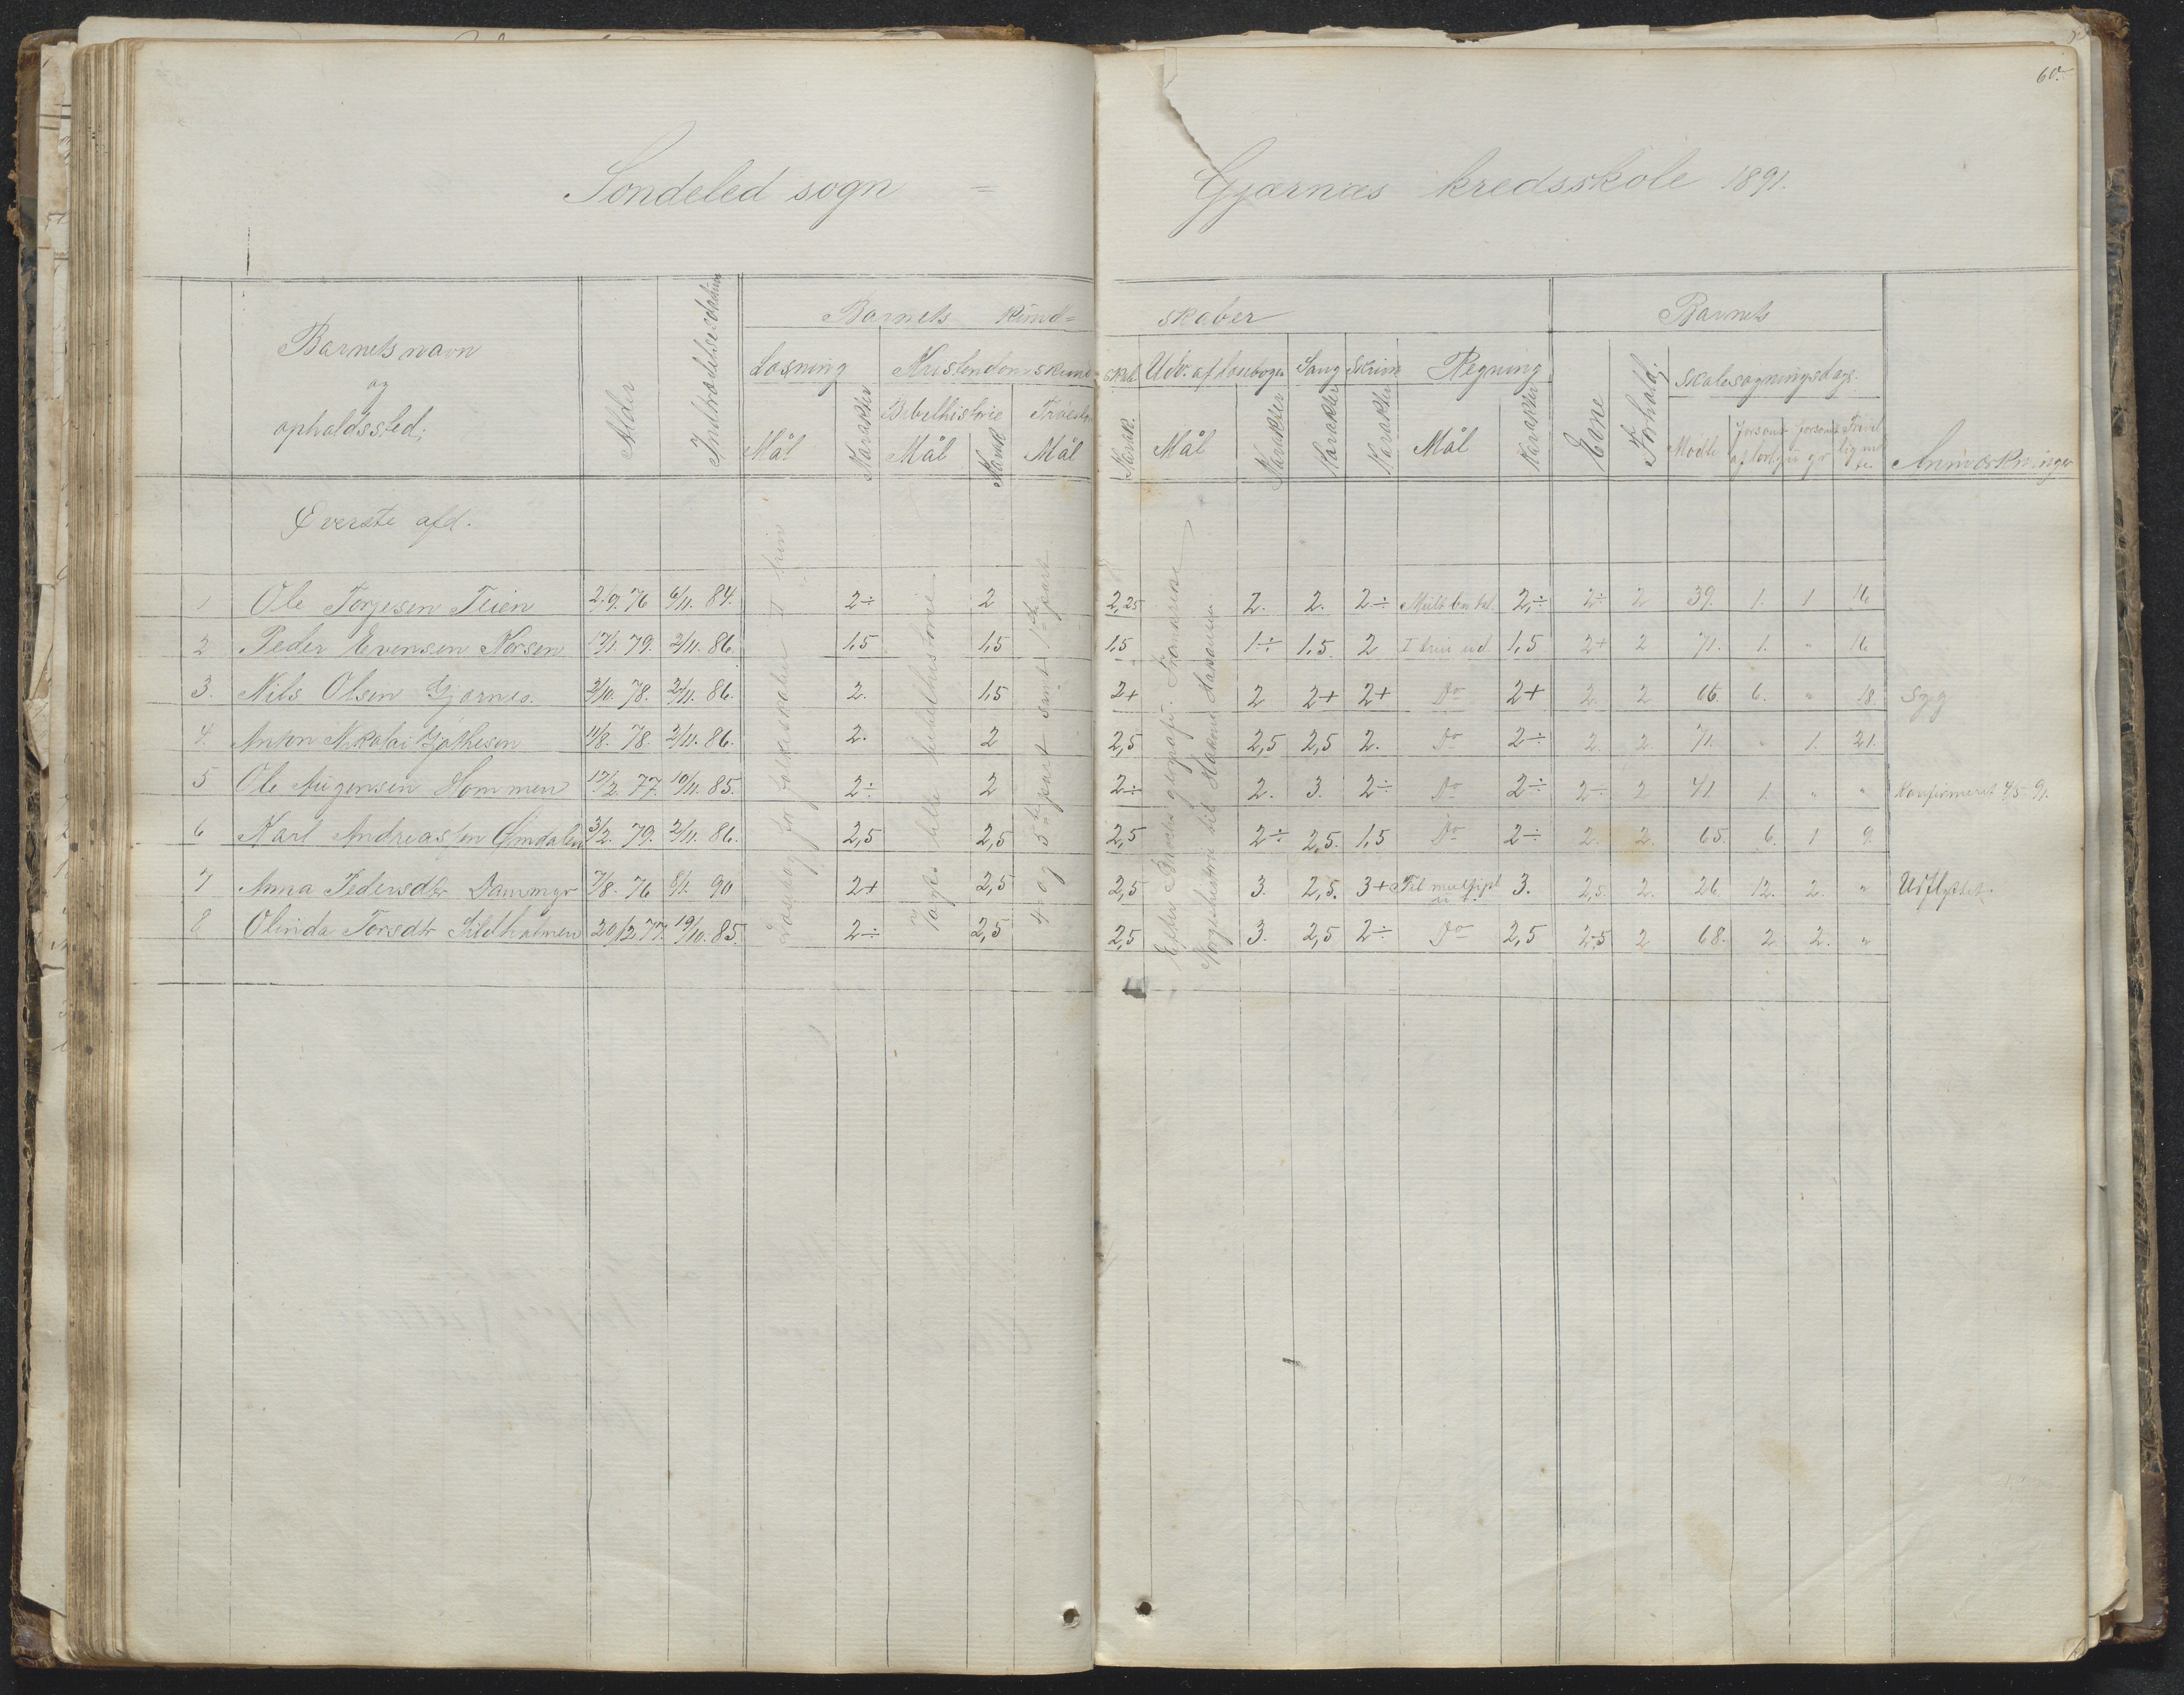 60.
Söndeled sogn = Gjærnæs kredsskole 1891.
Barnets navn og opholdssted;
Alder
Indtrædelsesdatum
Barnets kundskaber
Læsning
Mål
Karakter
Kristendomskundskab
Bibelhistorie
Mål
Karak.
Troes
Mål
Karak.
Udv. af læsebogen
Mål
Karakter
Sang
Karakter
Skrivn
Karakter
Regning
Mål
Karakter
Barnets
Evne
Forhold;
Skolesøgningsdage.
Mødte
Forsømt af lovl. gr
Forsømt u gr
Frivillig mødte
Anmærkninger
Øverste afd.
Læsebog for folkeskolen II trin
Voges lille bibelhistorie
4 og 5te part samt 1ste part
Efter Bræts geografi. Frankrige
Norgeshistorie til Håkon Håkonsen
1 Ole Torjesen Teien 2/9. 76 6/11. 84. 2÷ 2 2,25 2. 2. 2÷ 2,÷ 2÷ 2 39. 1. 1 16
2 Peder Evensen Norsen 17/1. 79. 2/11. 86. 1,5 1,5 1,5 1÷ 1,5 2 I trin ud. 1,5 2+ 2 71. 1. " 16
3. Nils Olsen Gjærnes. 2/10. 78. 2/11. 86. 2. 1,5 2+ 2 2+ 2+ Do 2+ 2. 2 66. 6. " 18. Syg
4. Anton Nikolai 11/8. 78. 2/11. 86. 2. 2 2,5 2,5 2,5 2. Do 2÷ 2. 2. 71. " 1. 21.
5 Ole Augensen Hommen 17/2. 77. 10/11. 85. 2÷ 2 2÷ 2. 3. 2÷ Do 2÷ 2÷ 2 41 1. " " Konfirmeret 4/5 91.
6 Karl Andreassen Omdalen 3/2. 79. 2/11. 86. 2,5 2,5 2,5 2÷ 2,5. 1,5 Do 2÷ 2. 2. 65. 6. 1 9.
7 Anna Pedersdtr Dammyr 7/8. 76 8/1. 90 2+ 2,5 2,5 3. 2,5. 3+ Til multipl 3. 2,5. 2. 26. 12. 2. " Udflyttet.
8 Olinda Torsdtr Sildholmen 20/12. 77. 19/10. 85. 2÷ 2,5 2,5 3. 2,5 2÷ Do 2,5 2,5 2 68. 2 2. "